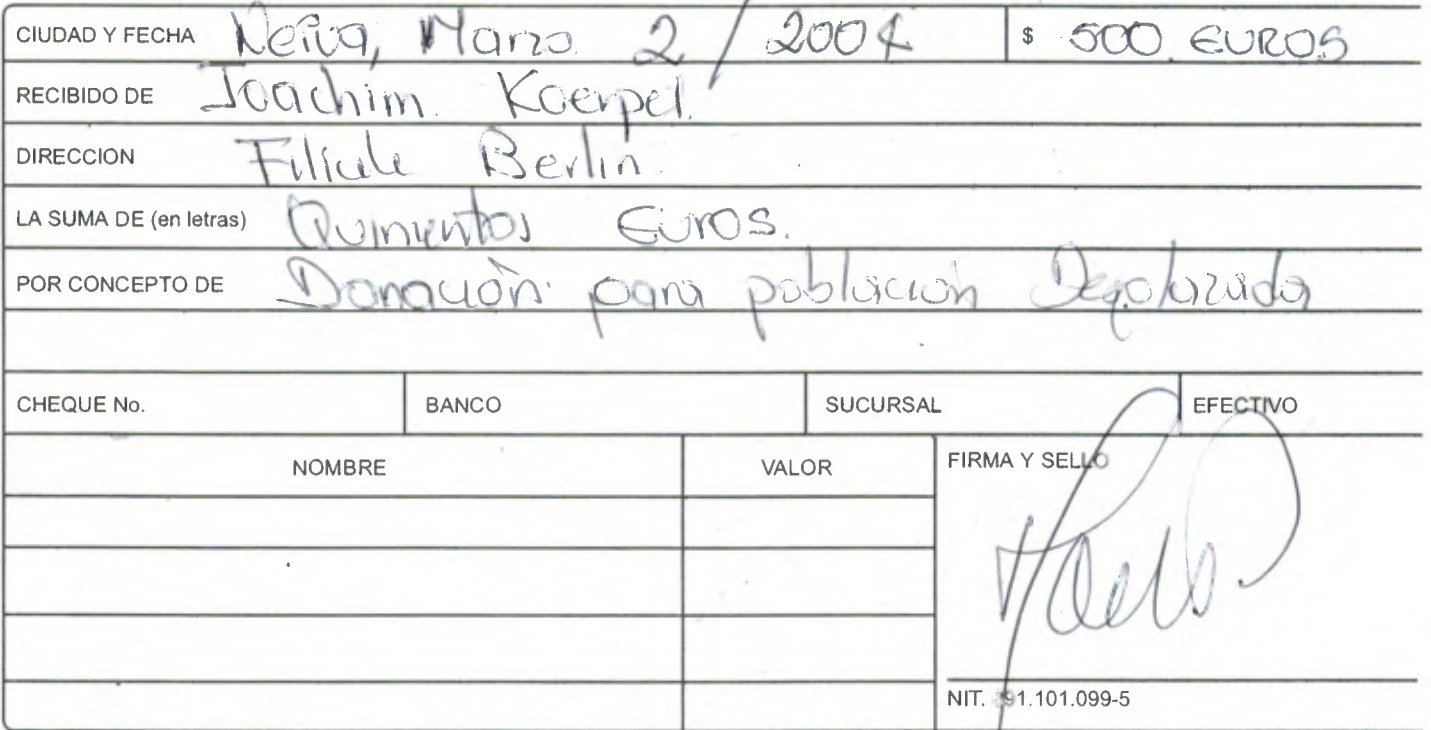 CIUDAD Y FECHA Neiva, Marzo 2 / 2004 $ 500 EUROS
RECIBIDO DE Joachim Koerpel.
DIRECCION Filiale Berlin
LA SUMA DE (en letras) Quinientos Euros.
POR CONCEPTO DE Donación para población Desplazada
CHEQUE No. BANCO SUCURSAL EFECTIVO
NOMBRE VALOR FIRMA Y SELLO
NIT. 891.101.099-5